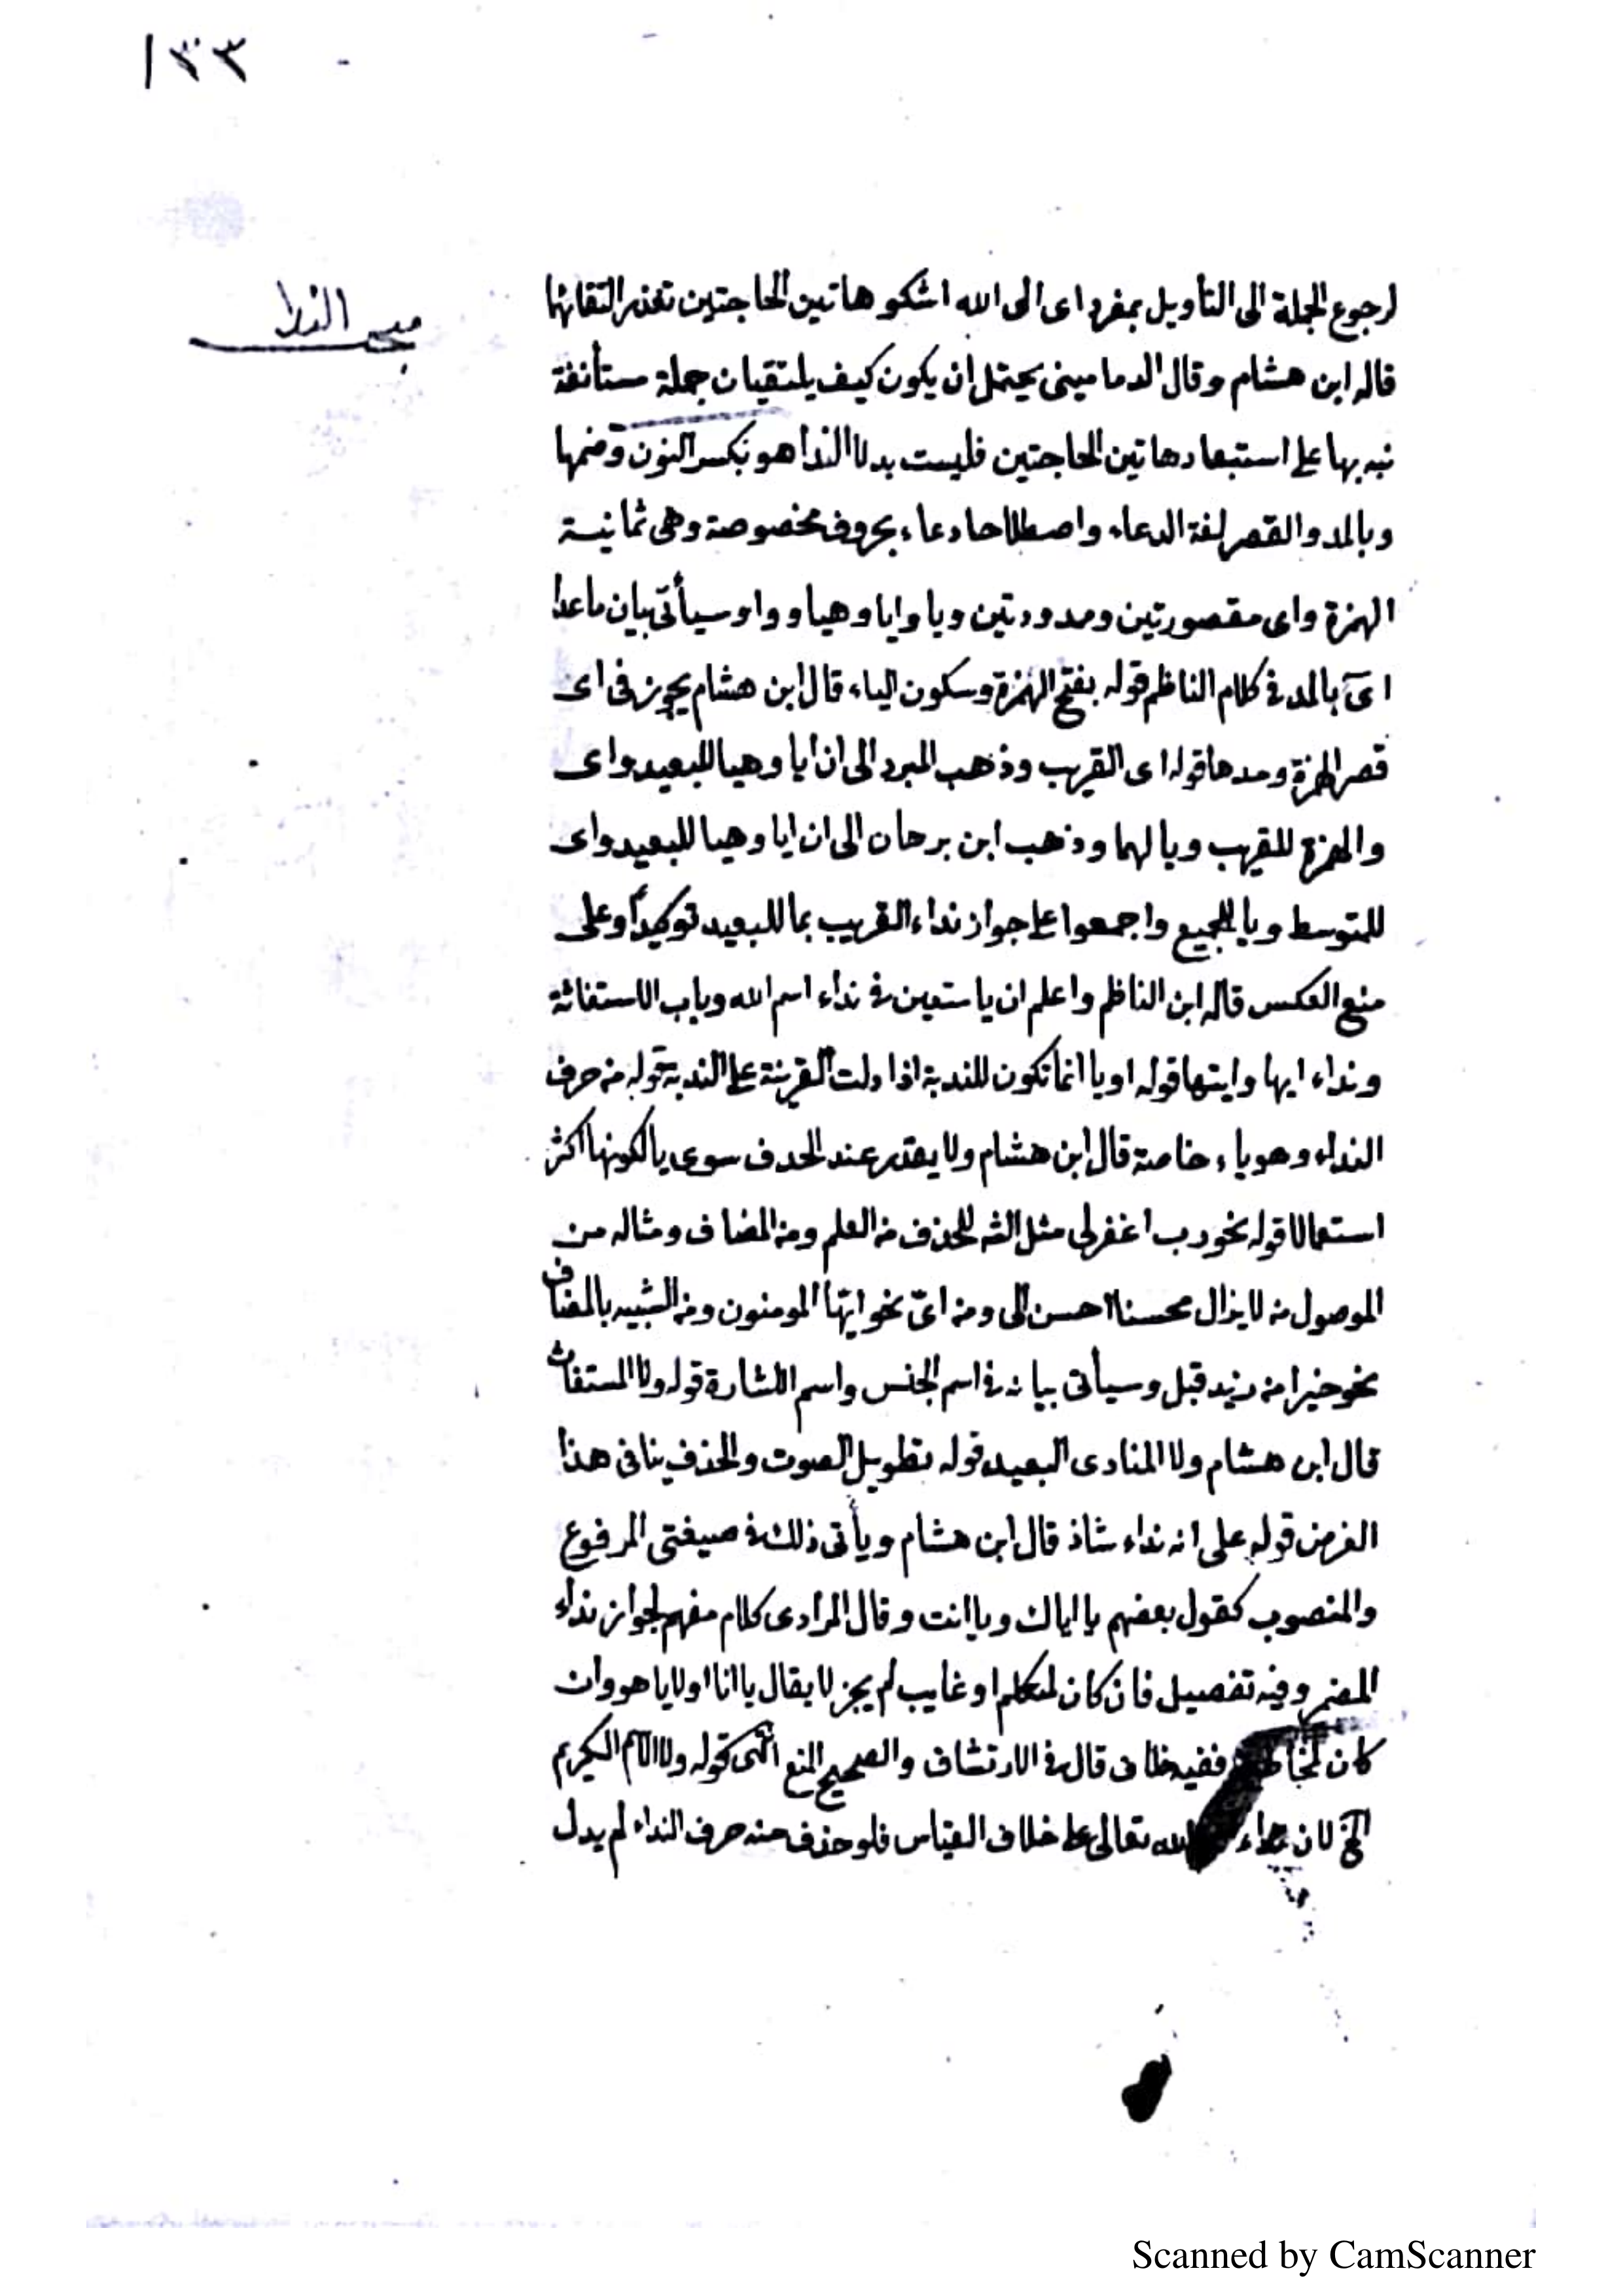 ١٣٣
مبحث الندا
لرجوع الجملة الى التأويل بمفرد اى الى الله اشكو هاتين الحاجتين تعذر التقائهما
قاله ابن هشام وقال الدمامينى يحتمل ان يكون كيف يلتقيان جملة مستأنفة
نبه بها على استبعاد هاتين الحاجتين فليست بدلا الندا هو بكسر النون وضمها
وبالمد والقصر لغة الدعاء واصطلاحا دعاء بحروف مخصوصة وهى ثمانية
الهمزة واى مقصورتين وممدودتين ويا وايا وهيا ووا وسيأتى بيان ما عدا
اىٓ بالمد فى كلام الناظم قوله بفتح الهمزة وسكون الياء قال ابن هشام يجوز فى اى
قصر الهمزة ومدها قوله اى القريب وذهب المبرد الى ان أيا وهيا للبعيد واى
والهمزة للقريب ويا لهما وذهب ابن برحان الى ان ايا وهيا للبعيد واى
للمتوسط ويا للجميع واجمعوا على جواز نداء القريب بما للبعيد توكيدأ وعلى
منع العكس قاله ابن الناظم واعلم ان يا ستعين فى نداء اسم الله وباب الاستغاثة
ونداء ايها وايتها قوله او يا انما تكون للندبة اذا دلت القرينة على الندبة قوله من حرف
النداء وهو ياء خاصة قال ابن هشام ولا يقدر عند الحدف سوى يا لكونها اكثر
استعمالا قوله نحو رب اغفر لى مثل الشه للحذف من العلم ومن المضاف ومثاله من
الموصول من لا يزال محسنا احسن الى ومن اىّ نحو ايّها المومنون ومن الشبيه بالمضاف
نحو خيرا من زيد قبل وسيأتى بيانه فى اسم الجنس واسم الاشارة قوله ولا المستغاث
قال ابن هشام ولا المنادى البعيد قوله تطويل الصوت والحذف ينافى هذا
الغرض قوله على انه نداء شاذ قال ابن هشام ويأتى ذلك فى صيغتى المرفوع
والمنصوب كقول بعضهم يا اياك ويا انت وقال المرادى كلام مفهم لجواز نداء
المضمر وفيه تفصيل فان كان لمتكلم او غايب لم يجز لا يقال يا انا اولا يا هو وان
كان لمخاطب ففيه خلاف قال فى الارتشاف والصحيح المنع انتهى قوله ولا الاسم الكريم
الخ لان نداء الله تعالى على خلاف القياس فلو حذف منه حرف النداء لم يدل
Scanned by CamScanner